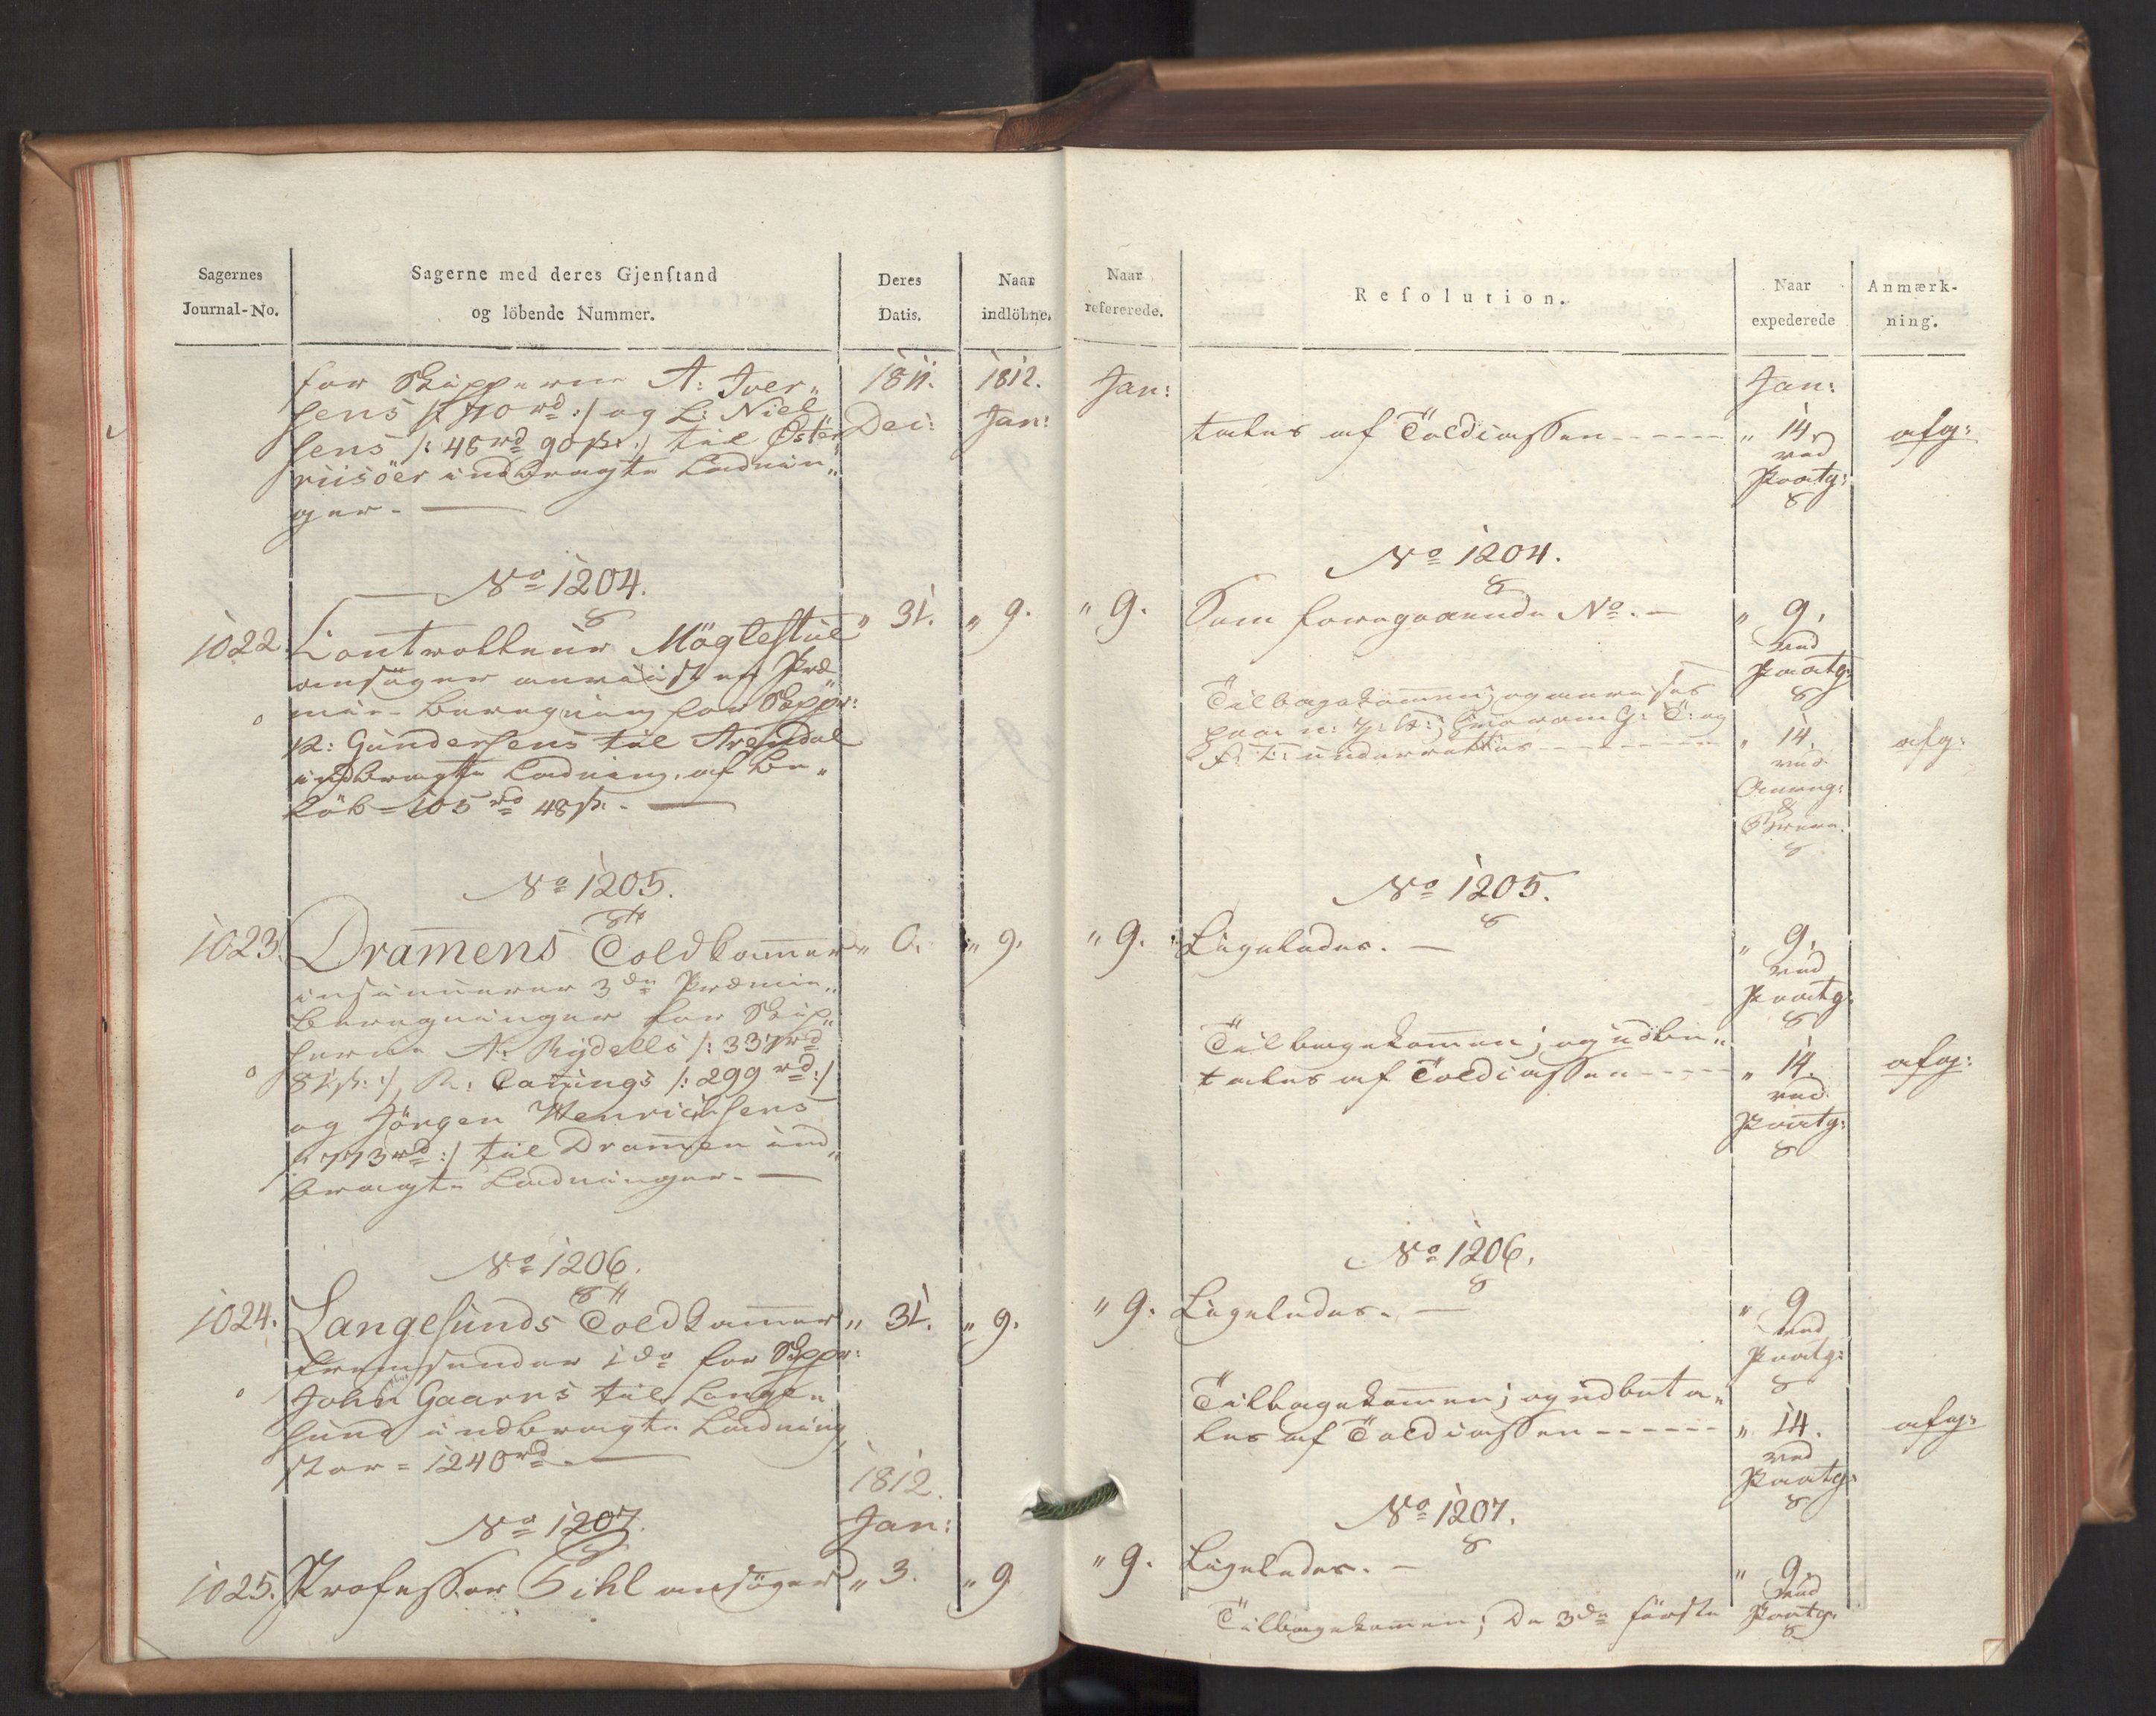 Sagernes
Journal-No.
Sagerne med deres Gjenstand
og löbende Nummer.
Deres
Datis.
Naar
indlöbne.
for Skipperne A: Iver„
sens /: 710 rd :/ og L: Niel„
sens /: 48 rd 90 s. :/ til Öster
riisöer indbragte Ladnin„
ger. —
1811.
Dec:
1812.
Jan:
No 1204.
1022.
Controlleur Möglestue
ansöger anviist en Præ„
mie Beregning for Skppr:
R: Gundersens til Arendal
indbragte Ladning, af Be„
löb = 105 rd 48 s. —
„ 31.
„ 9.
No 1205.
1023.
Dramens Toldkammer
insinuerer 3de Præmie„
Beregninger for Skip„
perne A: Rÿdells /: 337 rd
81 s. :/, R: Cannings /: 299 rd :/
og Jörgen Henrichsens
/: 773 rd :/ til Dramen ind„
bragte Ladninger. —
„ 0.
„ 9.
No 1206.
1024.
Langesunds Toldkammer
fremsender 1 do for Skppr:
John Gaarns til Lange„
sund indbragte Ladning
stor = 1240 rd. —
„ 31.
„ 9.
1812.
Jan:
No 1207.
1025.
Professor Tihl ansöger
„ 3.
„ 9
Naar
refererede.
Resolution.
Naar
expederede
Anmærk-
ning.
Jan:
tales af Toldcassen - - - - -
Jan:
„ 14.
ved
Paategn:
afg:
No 1204.
„ 9.
Som foregaaende No. —
„ 9.
ved
Paategn:
Tilbagekommen; og anvises
underrettes - - - - - - -
„ 14.
ved
Anvisn:
&
Breve.
afg:
No 1205.
„ 9.
Ligeledes. —
„ 9.
ved
Paategn:
Tilbagekommen; og udbe„
tales af Toldcassen - - - - -
„ 14.
ved
Paategn:
afg:
No 1206.
„ 9.
Ligeledes. —
„ 9
ved
Paategn:
Tilbagekommen; og udbeta„
les af Toldcassen - - - - - -
„ 14.
ved
Paategn:
afg:
No 1207.
„ 9.
Ligeledes. —
„ 9.
ved
Paategn:
Tilbagekommen; De 3de förste